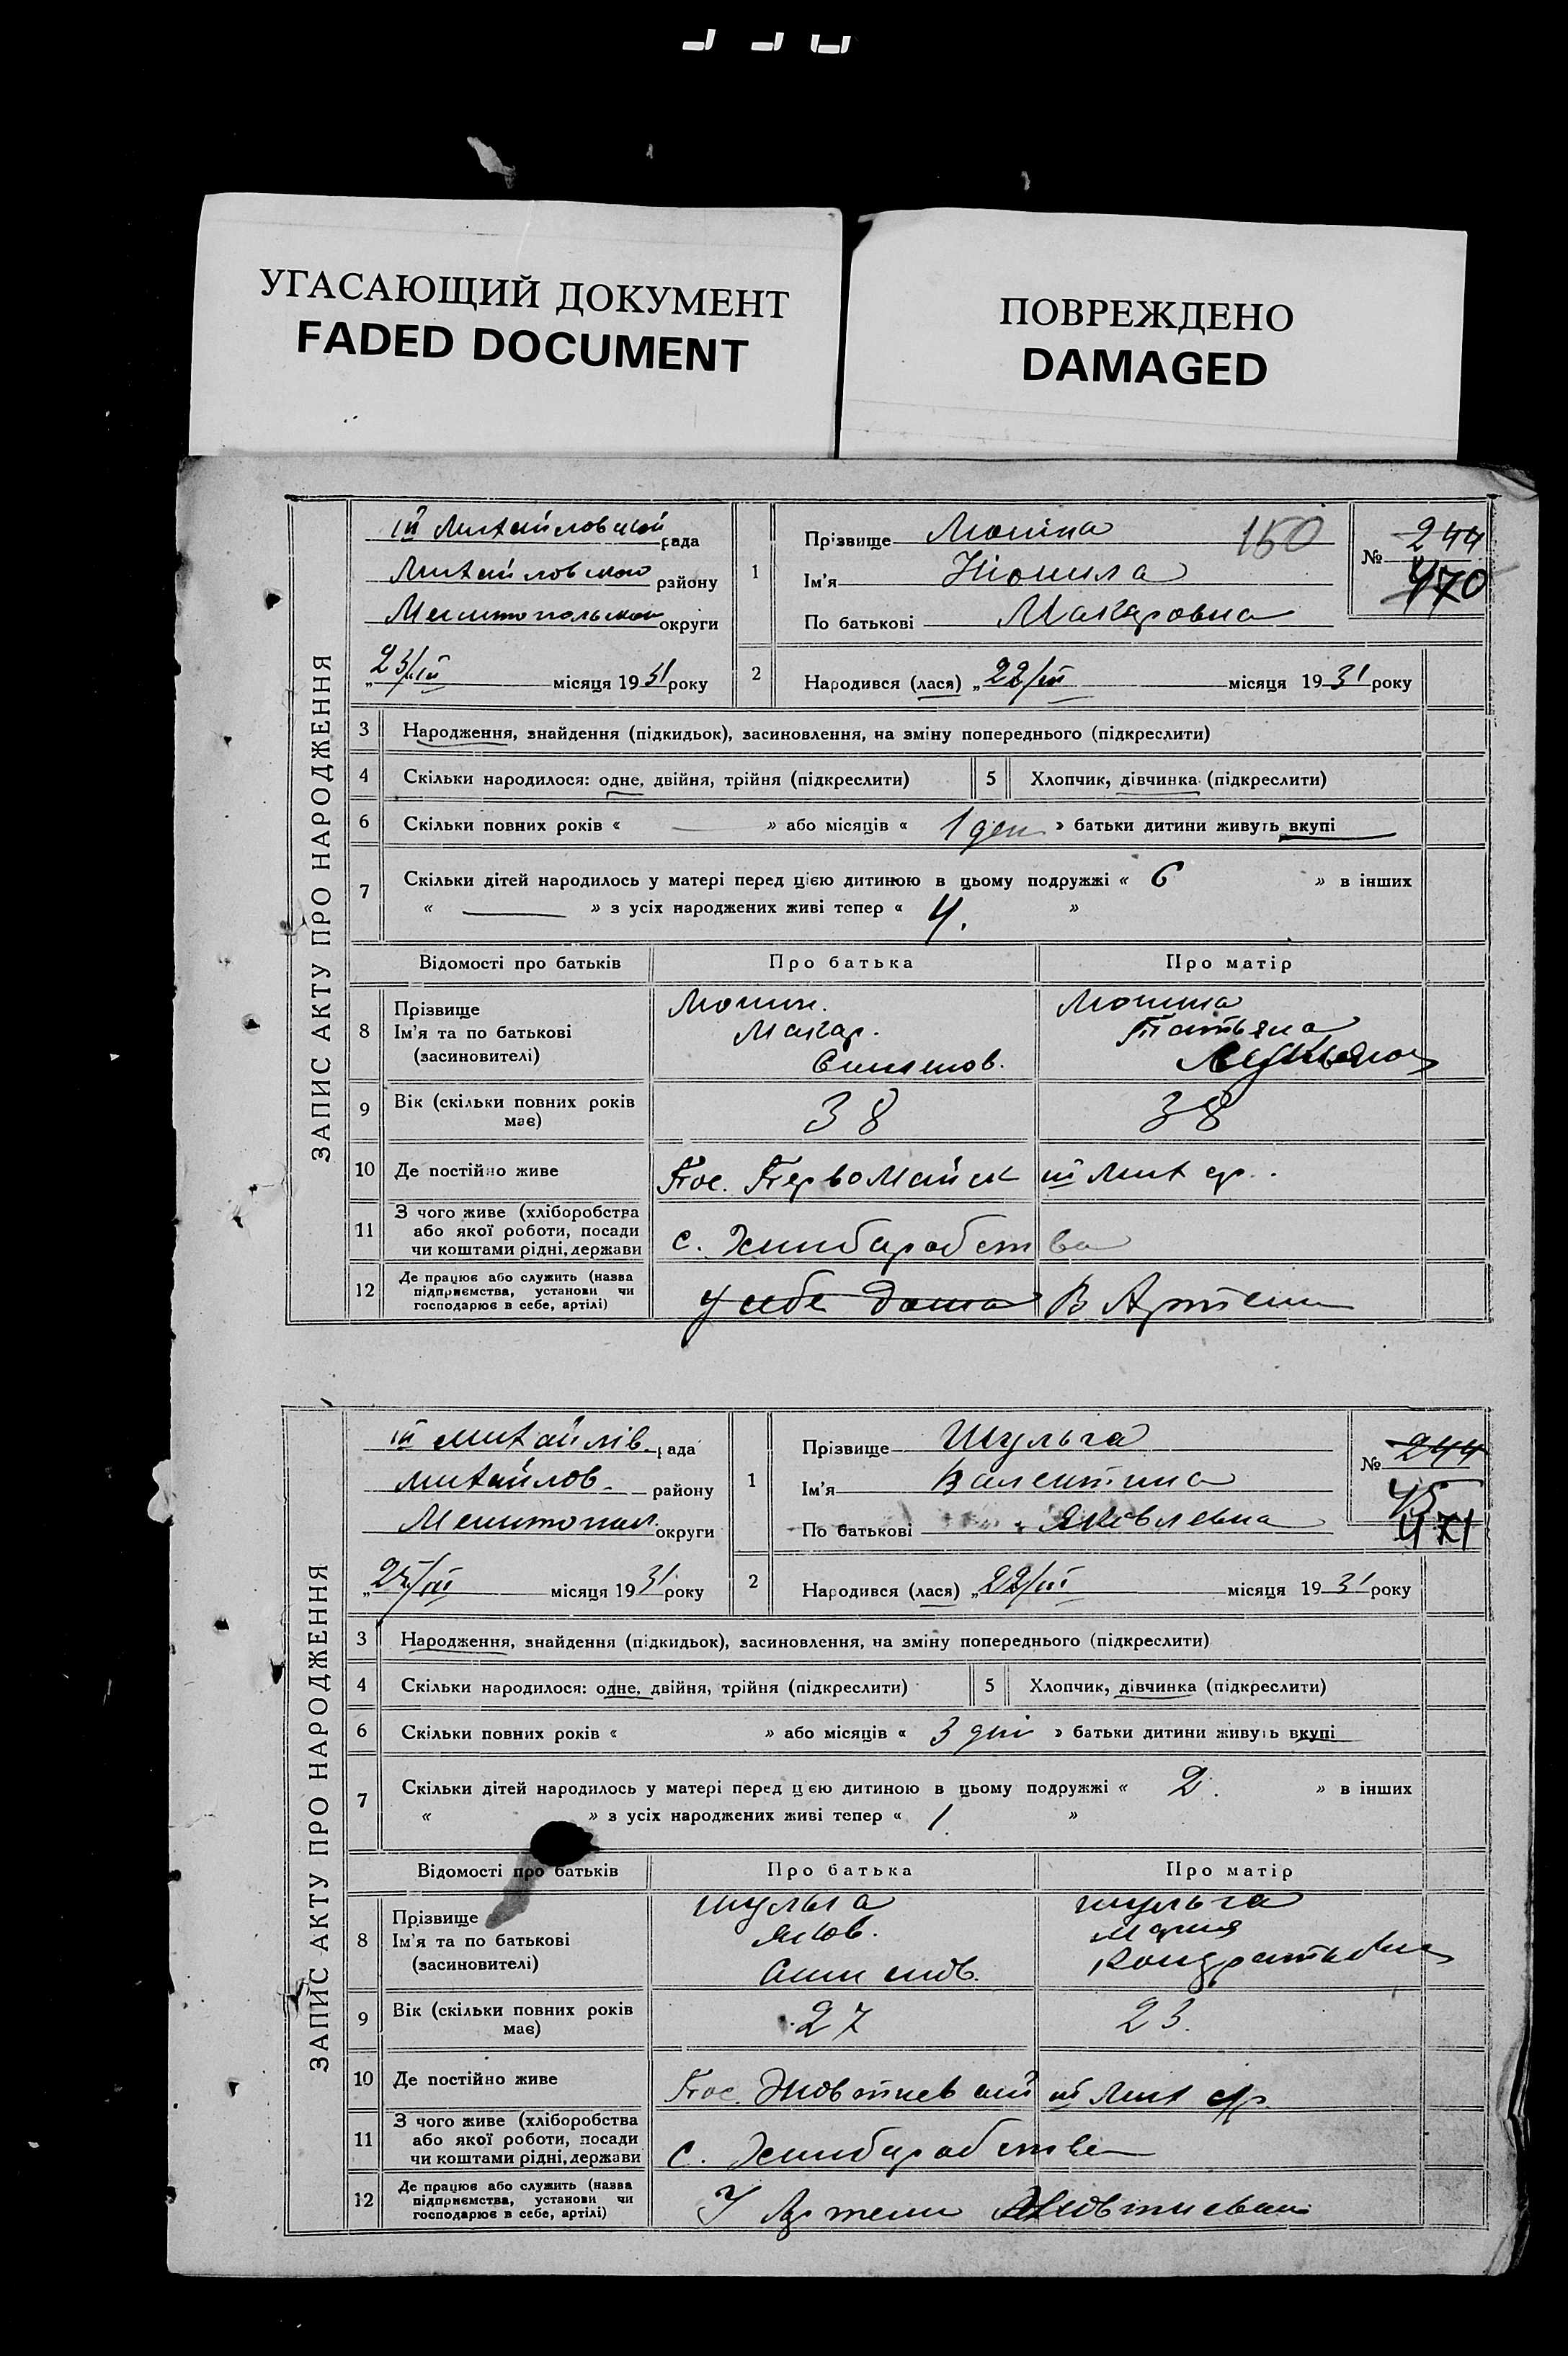 УГАСАЮЩИЙ ДОКУМЕНТ
FADED DOCUMENT
ПОВРЕЖДЕНО
DAMAGED
ЗАПИС АКТУ ПРО НАРОДЖЕННЯ
рада
району
округи
23/III місяця 1931 року
1
Прізвище 150
Ім'я
По батькові Макаровна
№ 244
470
2
Народився (лася) „22/III місяця 1931 року
3 Народження, знайдення (підкидьок), засиновлення, на зміну попереднього (підкреслити)
4 Скільки народилося: одне, двійня, трійня (підкреслити) 5 Хлопчик, дівчинка (підкреслити)
6 Скільки повних років « — » або місяців « 1 ден » батьки дитини живуть вкупі
7 Скільки дітей народилось у матері перед цією дитиною в цьому подружжі « 6 » в інших
« — » з усіх народжених живі тепер « 4. »
Відомості про батьків Про батька Про матір
8 Прізвище
Ім'я та по батькові Макар. Татьяна
(засновителі)
9 Вік (скільки повних років має) 38 38
10 Де постійно живе Пос. ПервоМайск III Мих ср.
11 З чого живе (хліборобства або якої роботи, посади чи коштами рідні, держави с. Хлибаробства
12 Де працює або служить (назва підприємства, установи чи господарює в себе, артілі) у себе дома В Артели
ЗАПИС АКТУ ПРО НАРОДЖЕННЯ
III Михайлів. рада
Михайлов. району
Мелитопол. округи
„25/III місяця 1931 року
1
Прізвище Шульга
Ім'я Валентина
По батькові Яковлевна
№ 244
45
471
2
Народився (лася) „22/III місяця 1931 року
3 Народження, знайдення (підкидьок), засиновлення, на зміну попереднього (підкреслити)
4 Скільки народилося: одне, двійня, трійня (підкреслити) 5 Хлопчик, дівчинка (підкреслити)
6 Скільки повних років « » або місяців « 3 дні » батьки дитини живуть вкупі
7 Скільки дітей народилось у матері перед цією дитиною в цьому подружжі « 2. » в інших
« » з усіх народжених живі тепер « 1. »
Відомості про батьків Про батька Про матір
8 Прізвище Шульга Шульга
Ім'я та по батькові Яков. Мария
(засиновителі) Кондратьевна
9 Вік (скільки повних років має) 27 23.
10 Де постійно живе Пос. Жовтневий III Мих с/р.
11 З чого живе (хліборобства або якої роботи, посади чи коштами рідні, держави с. Хлибаробства
12 Де працює або служить (назва підприємства, установи чи господарює в себе, артілі) У Артели